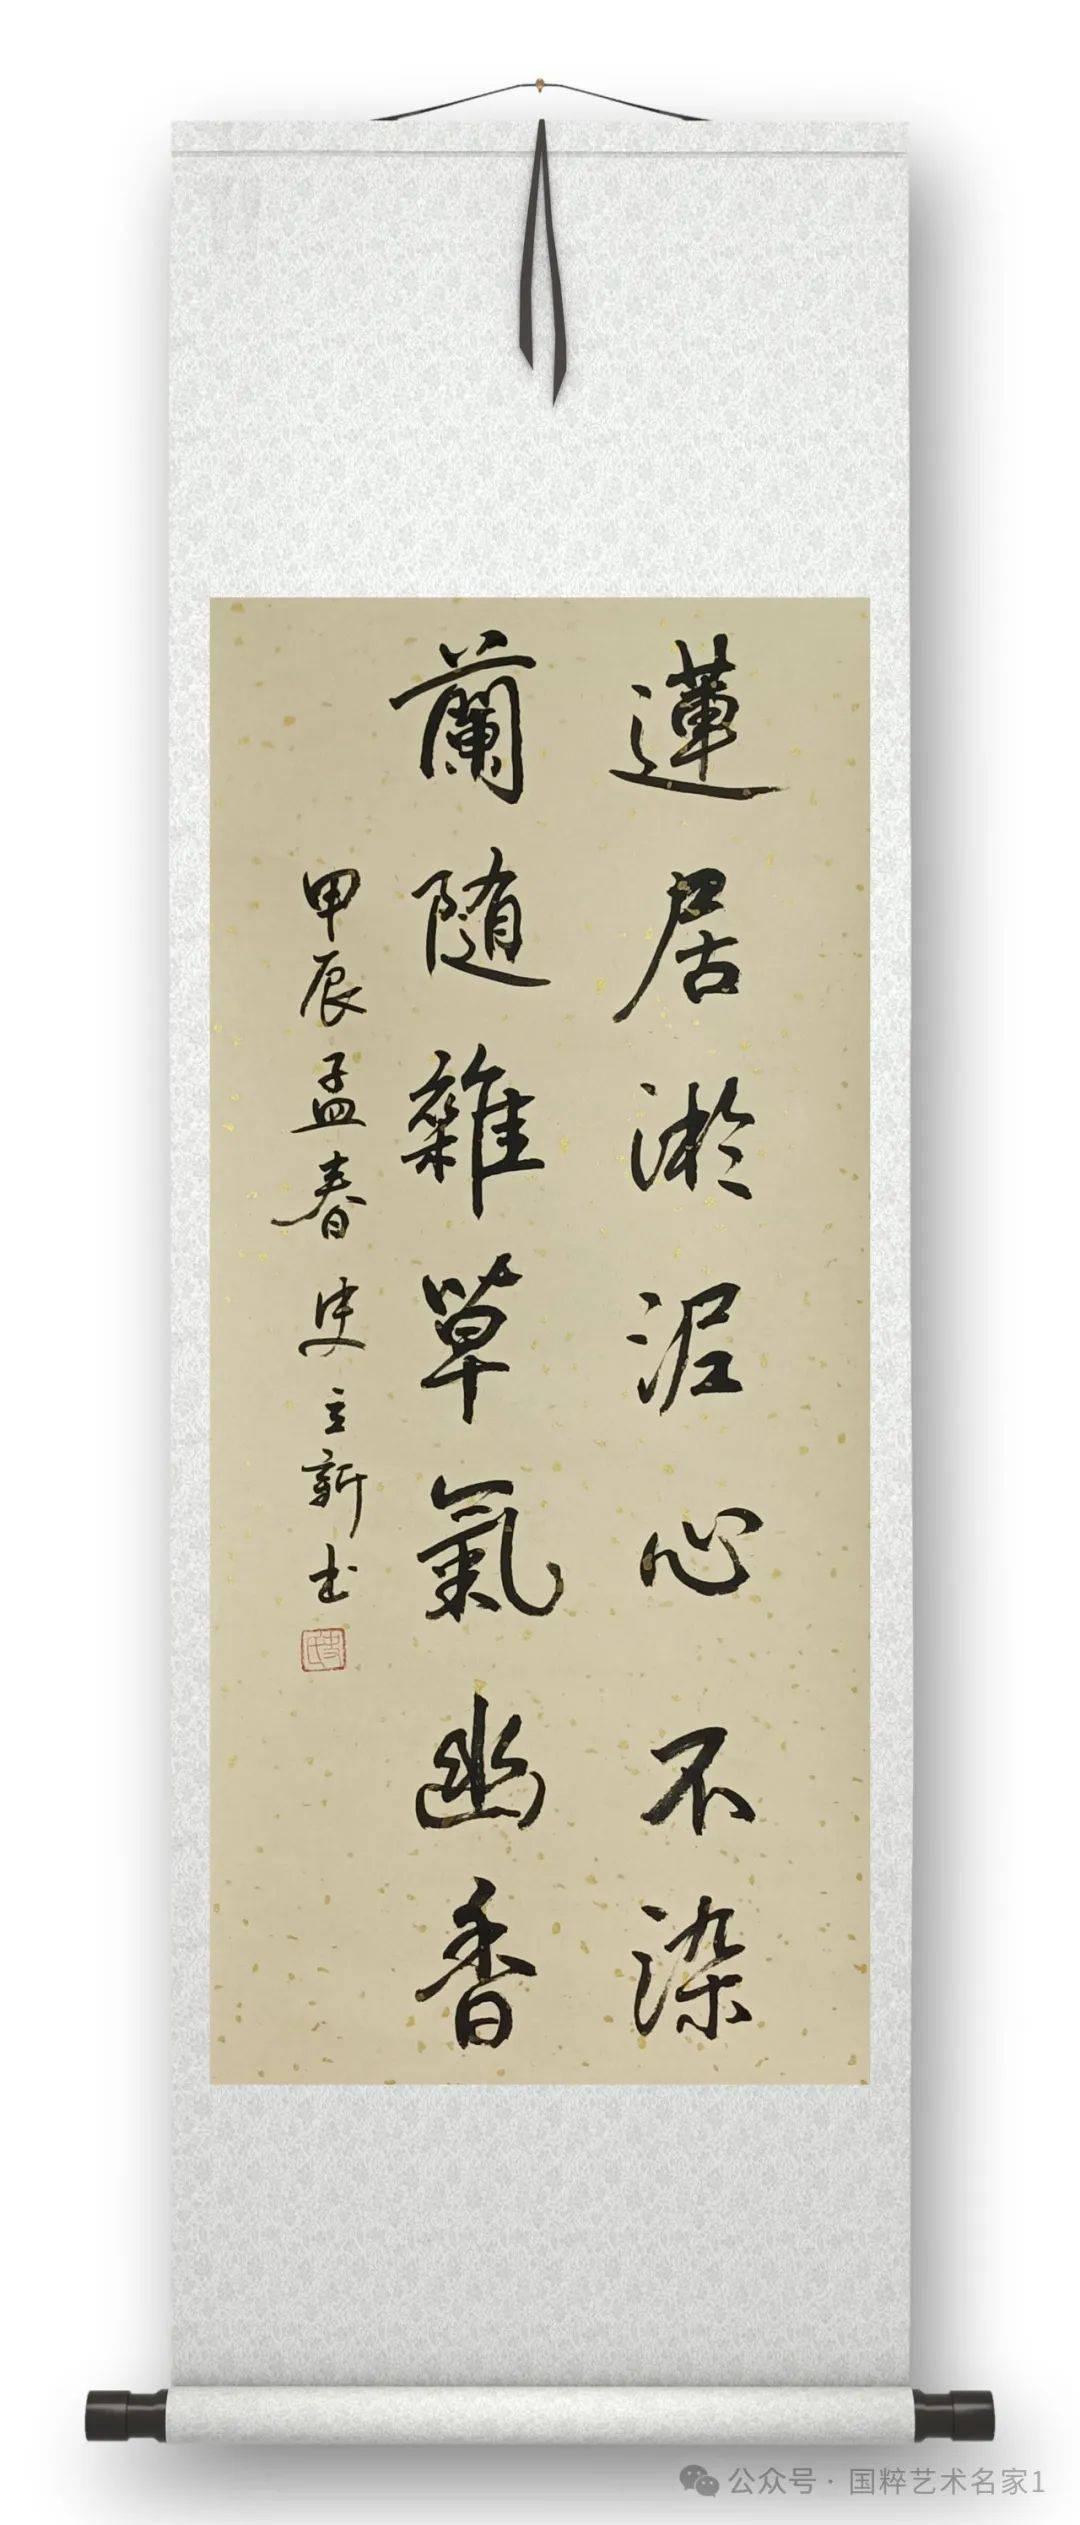 蓮居淤泥心不染
蘭随雜草氣幽香
甲辰孟春史立新书
史氏
公众号·国粹艺术名家1